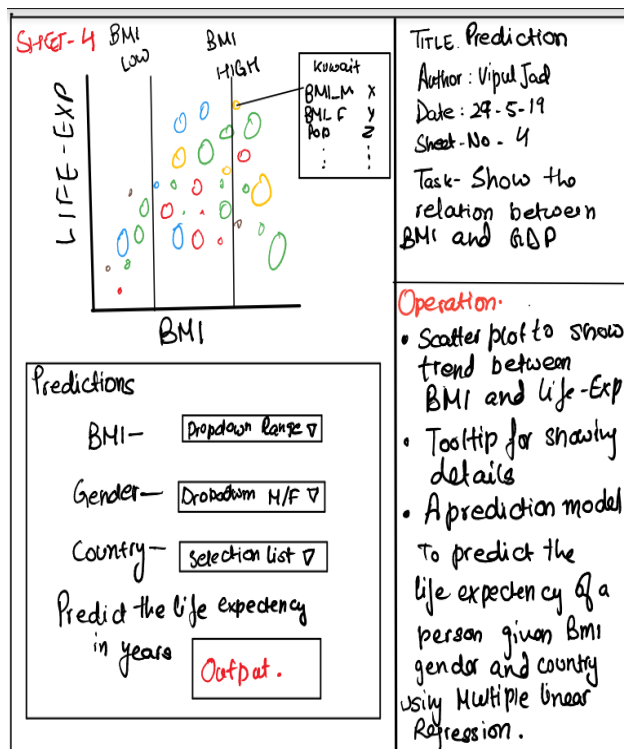 SHEET-4
BMI
LOW
BMI
HIGH
LIFE-EXP
BMI
Kuwait
BMI_M X
BMI_F Y
Pop Z
Predictions
BMI- Dropdown Range ▽
Gender- Dropdown M/F ▽
Country- Selection list ▽
Predict the life expectency
in years
Output.
TITLE. Prediction
Author: Vipul Jad
Date: 29-5-19
Sheet-No. 4
Task- Show the
relation between
BMI and GDP
Operation.
• Scatter plot to show
trend between
BMI and life-Exp
• Tooltip for showing
details
• A prediction model
To predict the
life expectency of a
person given BMI
gender and country
using Multiple linear
Regression.